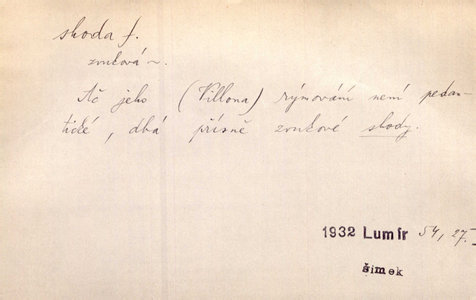 shoda f.
zvuková ~.
Ač jeho (Villona) rýmování není pedan-
tické, dbá přísně zvukové shody.
1932 Lumír 54, 27.
šimek